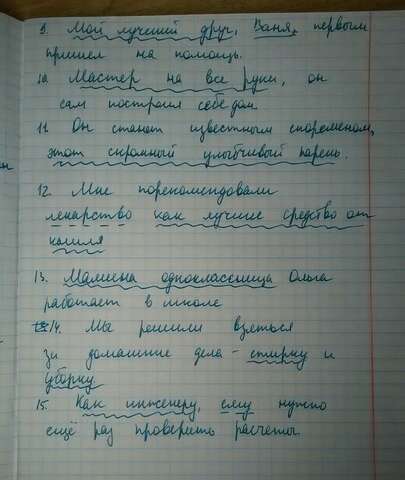 9. Мой лучший друг, Ваня, первым
пришел на помощь.
10. Мастер на все руки, он
сам построил себе дом
11. Он станет известным спортсменом,
этот скромный улыбчивый парень.
12. Мне порекомендовали
лекарство как лучшее средство от
кашля
13. Мамина одноклассница Ольга
работает в школе
14. Мы решили взяться
за домашние дела - стирку и
уборку
15. Как инженеру, ему нужно
ещё раз проверить расчеты.